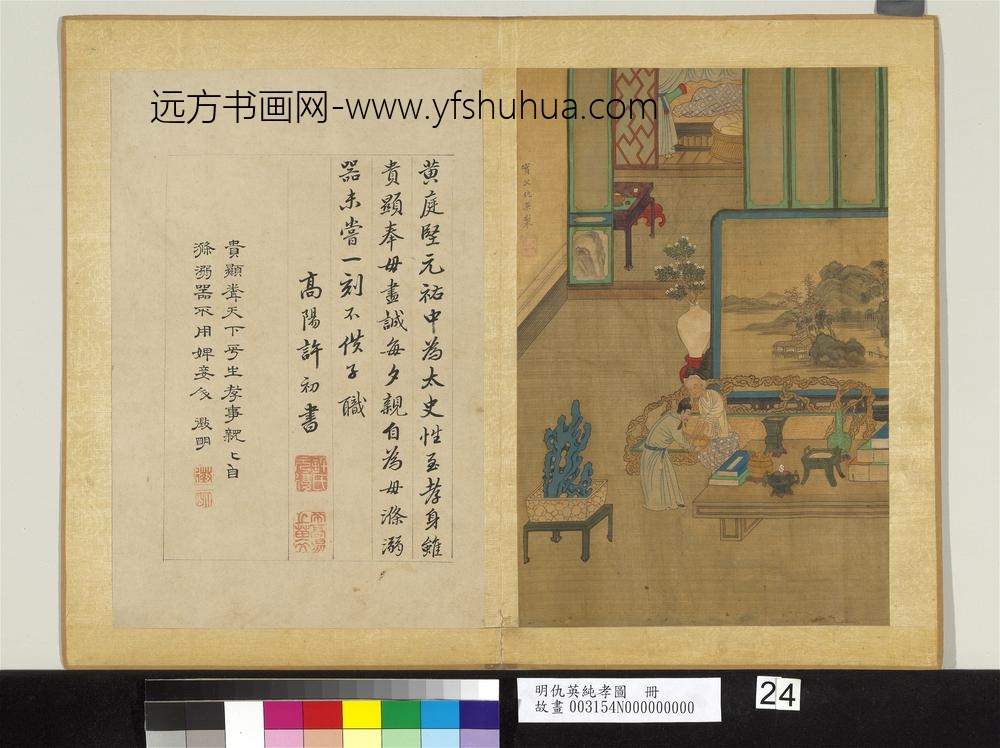 远方书画网-www.yfshuhua.com
黄庭堅元祐中為太史性至孝身雖
貴顯奉母盡誠每夕親自為母滌溺
器未嘗一刻不供子職
高陽許初書
貴顯聞天下平生孝事親親自
滌溺器不用婢妾人 徵明
實父仇英製
明仇英純孝圖 冊
故畫003154N000000000
24